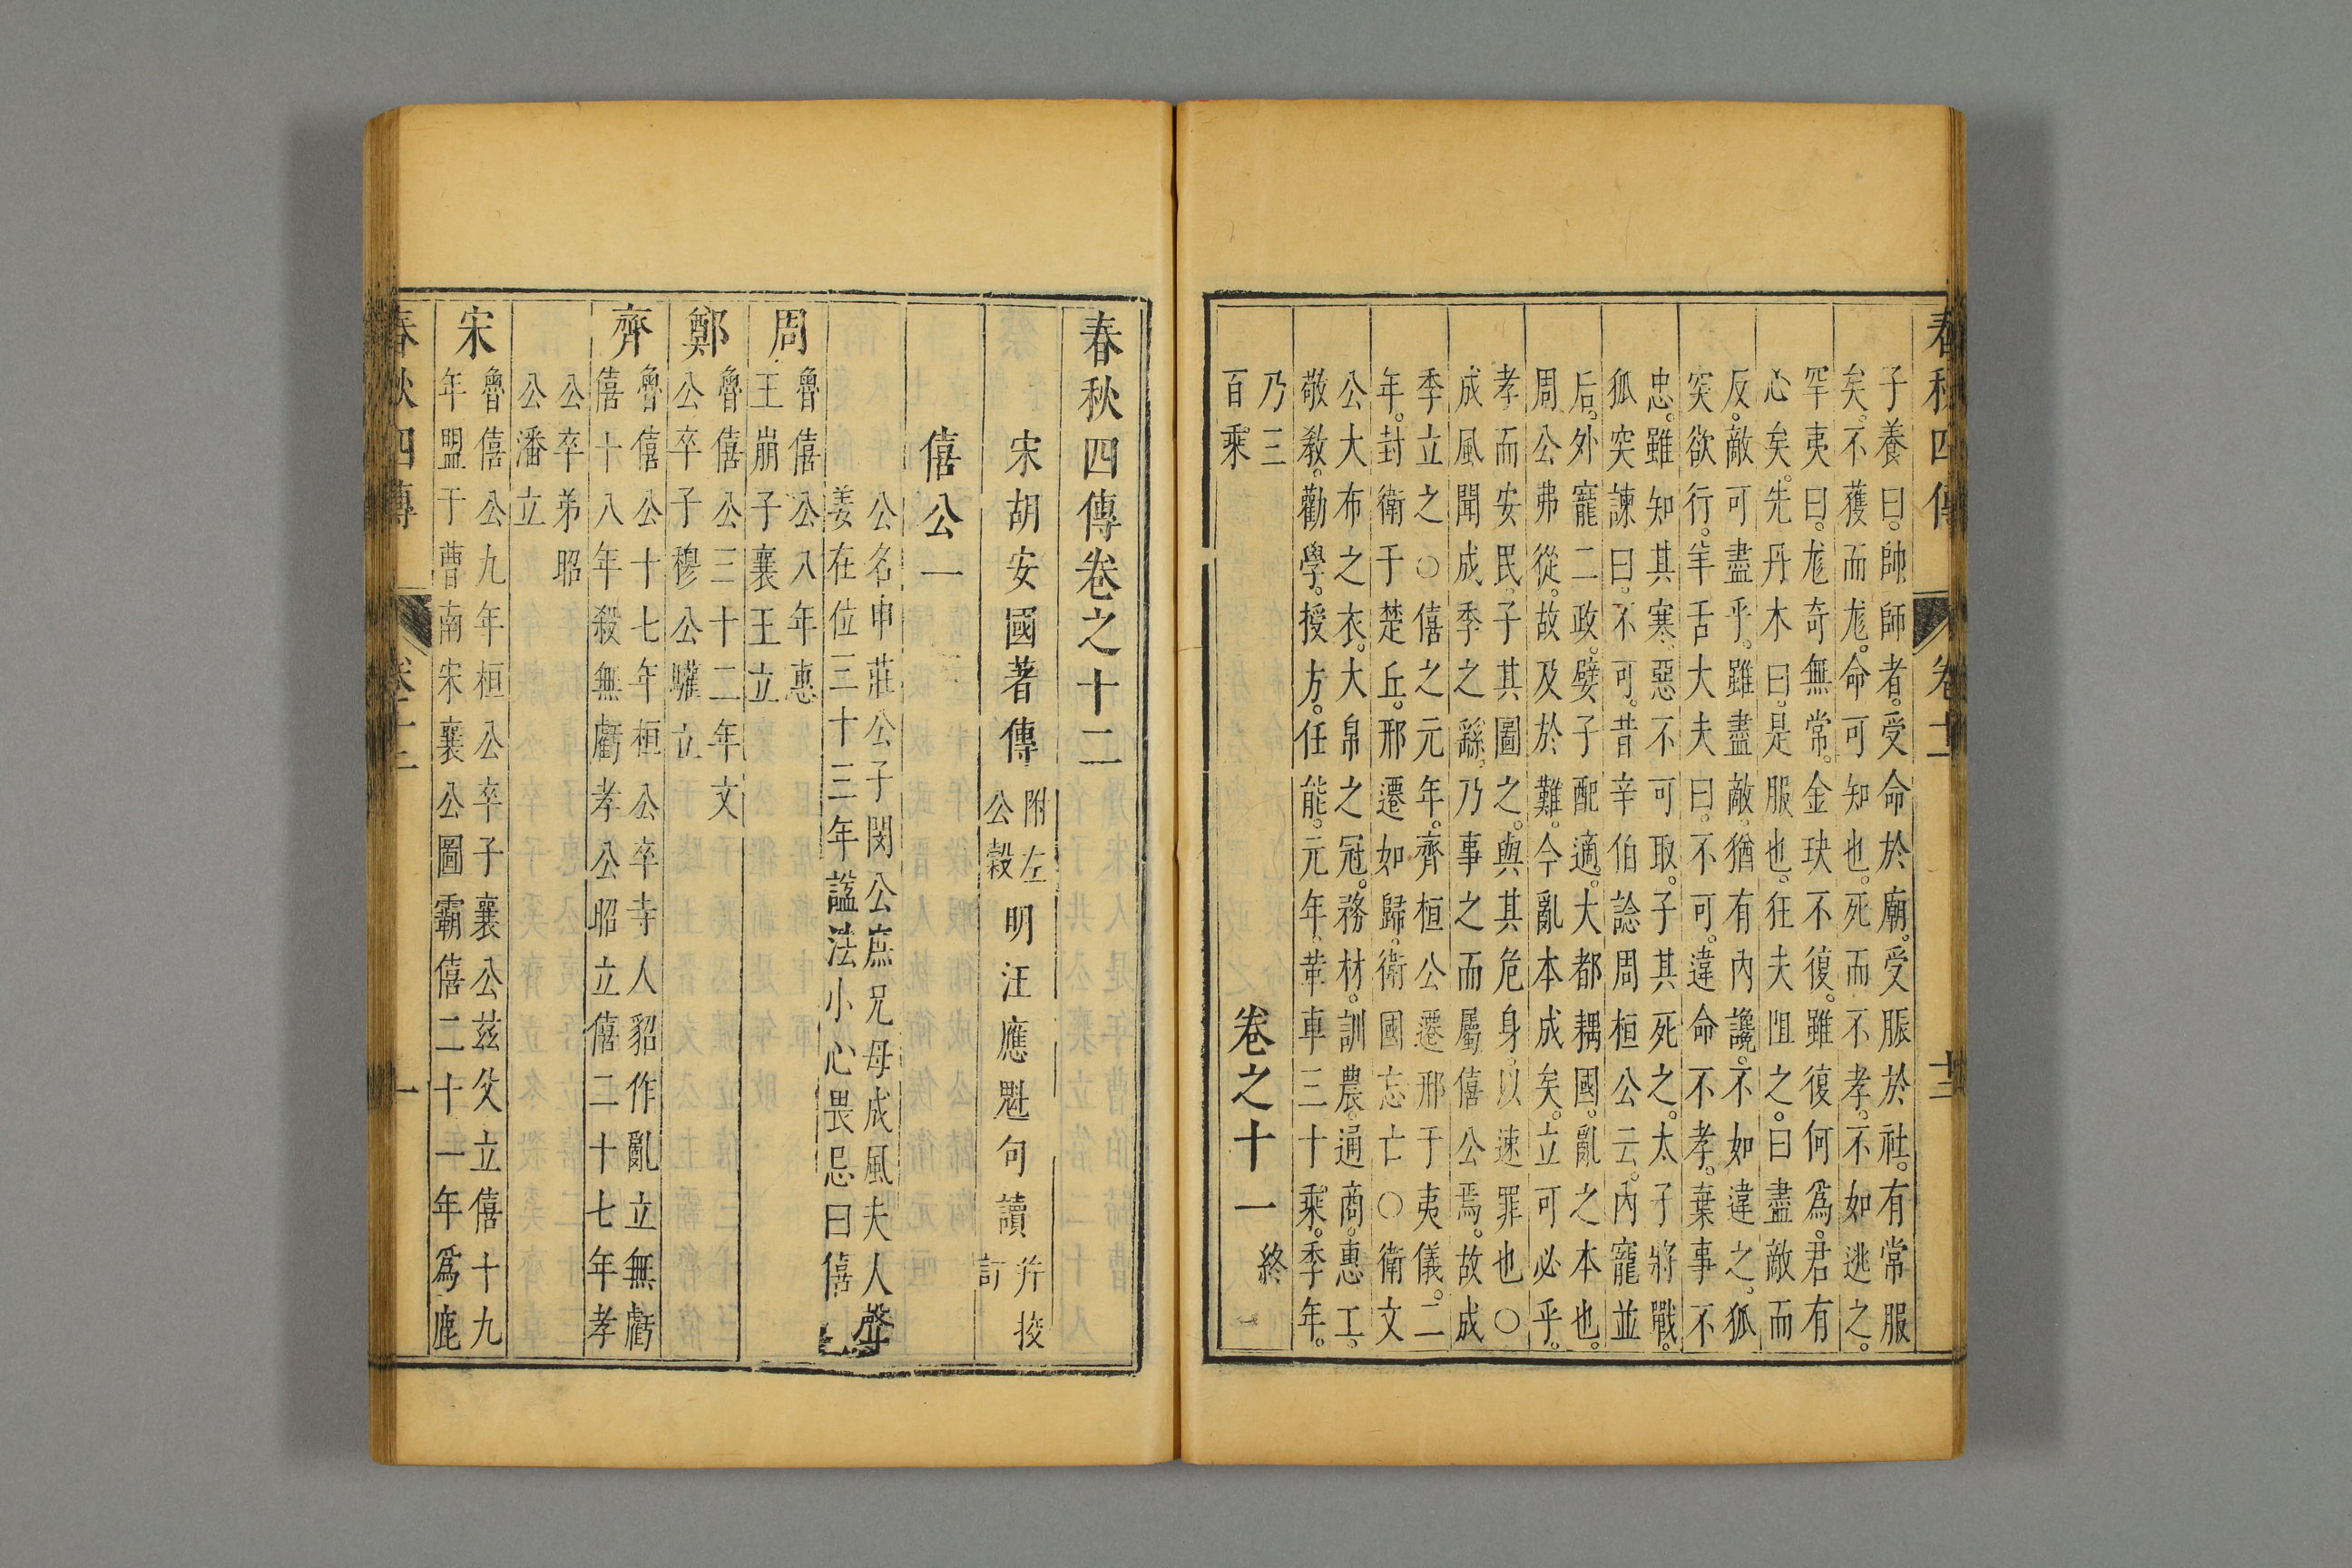 子養曰帥師者受命於廟受脤於社有常服
矣不獲而尨命可知也死而不孝不如逃之
罕夷曰尨奇無常金玦不復雖復何爲君有
心矣先丹木曰是服也狂夫阻之曰盡敵而
反敵可盡乎雖盡敵猶有內讒不如違之狐
突欲行羊舌大夫曰不可違命不孝棄事不
忠雖知其寒惡不可取子其死之太子將戰
狐突諫曰不可昔辛伯諗周桓公云內寵並
后外寵二政嬖子配適大都耦國亂之本也
周公弗從故及於難今亂本成矣立可必乎
孝而安民子其圖之與其危身以速罪也○
成風聞成季之繇乃事之而屬僖公焉故成
季立之○僖之元年齊桓公遷邢于夷儀二
年封衛于楚丘邢遷如歸衛國忘亡○衛文
公大布之衣大帛之冠務材訓農通商惠工
敬敎勸學授方任能元年革車三十乘季年
乃三
百乘
卷之十一終
春秋四傳卷之十二
宋胡安國著傳 附左
公穀 明汪應魁句讀 并挍
訂
僖公一
公名申莊公子閔公庶兄母成風夫人聲
姜在位三十三年諡法小心畏忌曰僖
周 魯僖公八年惠
王崩子襄王立
鄭 魯僖公三十二年文
公卒子穆公驩立
齊 魯僖公十七年桓公卒寺人貂作亂立無虧
僖十八年殺無虧孝公昭立僖二十七年孝
公卒弟昭
公潘立
宋 魯僖公九年桓公卒子襄公茲父立僖十九
年盟于曹南宋襄公圖霸僖二十一年爲鹿
春秋四傳 卷十二 一